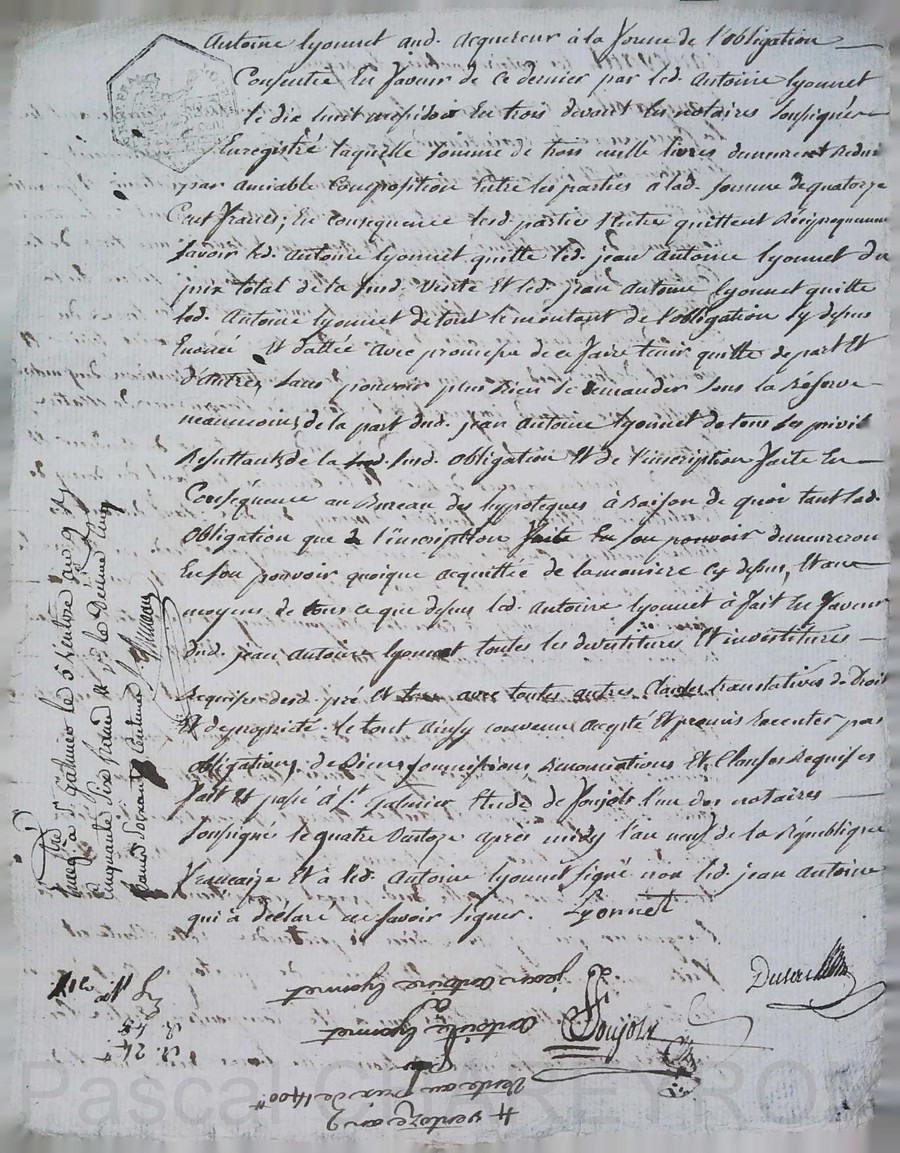 Antoine Lyonnet aud. acquereur à la forme de l'obligation
Consentie En faveur de Ce dernier par led. Antoine Lyonnet
le dix huit messidor En trois devant les notaires soussignés
Enregistré laquelle somme de trois mille livres demeurent Redui
par amiable Composition Entre les parties à lad. somme de quatorze
Cent francs; En consequence lesd. partie s'entre quittent Réciproquement
savoir led. Antoine Lyonnet quitte led. jean Antoine Lyonnet du
prix total de la susd. vente Et led. jean Antoine Lyonnet quitte
led. Antoine Lyonnet de tout le montant de l'obligation Cy depus
Enoncé Et dattée avec promesse de ce faire tenir quitte de part Et
d'autre, sans pouvoir plus Rien se demander sous la Réserve
neaumoins de la part dud. jean Antoine Lyonnet de tous ses privil
Résultants de la susd. obligation Et de l'inscription faite En
Conséquence au Bureau des hypoteques à Raison de quoi tant lad.
obligation que l'inscription demeureron
En son pouvoir quoique acquittée de la maniere Cy depus, Et au
moyens de tous ce que depus led. Antoine Lyonnet à fait En faveur
dud. jean Antoine Lyonnet toutes les devestitures Et investitures
Requises dud. pré Et avec toutes autres Clauses translatives de Droit
Et de proprieté. le tout ainsy convenu accepté Et promis Executer par
obligations de Biens soumissions, Renonciations Et Clauses Requises
fait Et passé à St. Galmier Etude de Soujols l'un des notaires
soussignés le quatre Ventoze après midy l'an neuf de la Republique
francaize Et à led. Antoine Lyonnet signé non led. jean Antoine
qui à déclaré ne savoir signer. Lyonnet
Soujols
Enregtré à St. Galmier le 5 Ventose an 9
Cinquante Six francs
4 ventoze an 9
Vente au prix de 1400#
par
Antoine Lyonnet
à
jean antoine Lyonnet